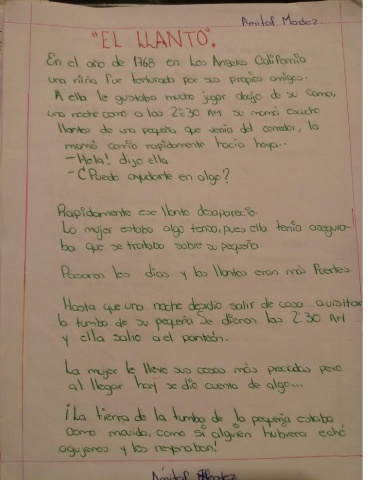 "EL LLANTO".
En el año de 1768 en Los Angeles California
una niña fue torturada por sus propios amigos.
A ella le gustaba mucho jugar debajo de su cama,
una noche como a las 2:30 AM su mamá escucho
llantos de una pequeña que venia del comedor, la
mamá corrio rapidamente hacia haya...
-Hola! dijo ella
-¿Puedo ayudarte en algo?
Rapidamente ese llanto desaparecio.
La mujer estaba algo tensa, pues ella tenia asegura-
ba que se trataba sobre su pequeña.
Pasaron los dias y los llantos eran más fuertes
Hasta que una noche decidio salir de casa a visitar
la tumba de su pequeña Se dieron las 2:30 AM
y ella salio a el panteón.
La mujer le llevo sus cosas más preciadas pero
al llegar hay se dio cuenta de algo...
¡La tierra de la tumba de la pequeña estaba
como movida, como si alguien hubiera echo
agujeros y los rellenaban!